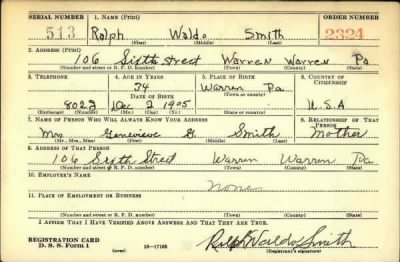 SERIAL NUMBER 1. NAME (Print) ORDER NUMBER
513 Ralph Waldo Smith 2324
(First) (Middle) (Last)
2. ADDRESS (Print)
106 Sixth Street Warren Warren Pa
(Number and street or R. F. D. number) (Town) (County) (State)
3. TELEPHONE 4. AGE IN YEARS 5. PLACE OF BIRTH 6. COUNTRY OF CITIZENSHIP
34 Warren
DATE OF BIRTH (Town or county)
802J Dec 2 1905 Pa. U.S.A
(Exchange) (Number) (Mo.) (Day) (Yr.) (State or country)
7. NAME OF PERSON WHO WILL ALWAYS KNOW YOUR ADDRESS 8. RELATIONSHIP OF THAT PERSON
Mrs Genevieve G. Smith Mother
(Mr., Mrs., Miss) (First) (Middle) (Last)
9. ADDRESS OF THAT PERSON
106 Sixth Street Warren Warren Pa.
(Number and street or R. F. D. number) (Town) (County) (State)
10. EMPLOYER'S NAME
none
11. PLACE OF EMPLOYMENT OR BUSINESS
(Number and street or R. F. D. number) (Town) (County) (State)
I AFFIRM THAT I HAVE VERIFIED ABOVE ANSWERS AND THAT THEY ARE TRUE.
REGISTRATION CARD
D. S. S. Form 1 (over) 16—17105 Ralph Waldo Smith
(Registrant's signature)